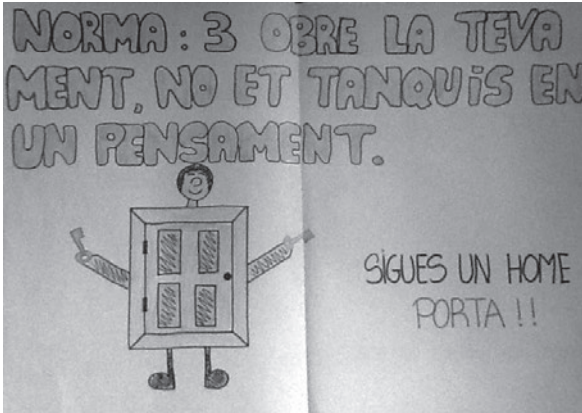 NORMA: 3 OBRE LA TEVA
MENT, NO ET TANQUIS EN
UN PENSAMENT.
SIGUES UN HOME
PORTA!!